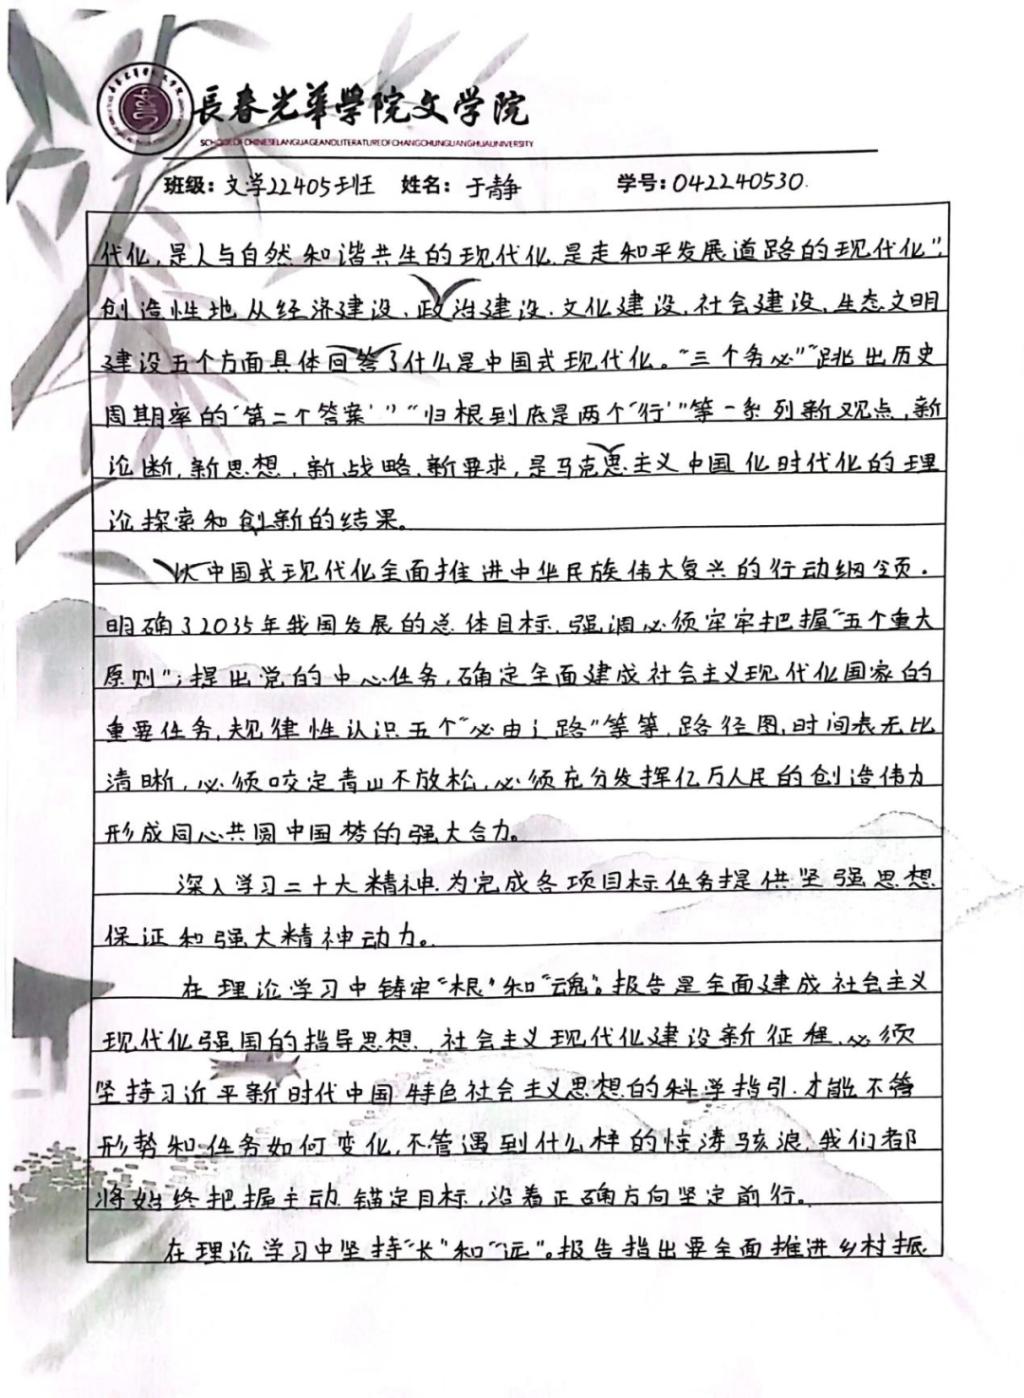 長春光華學院文学院
SCHOOL OF CHINESE LANGUAGE AND LITERATURE OF CHANGCHUN GUANGHUA UNIVERSITY
班级：文学22405班 姓名：于静 学号：042240530.
代化，是人与自然和谐共生的现代化，是走和平发展道路的现代化”，
创造性地从经济建设、政治建设、文化建设、社会建设、生态文明
建设五个方面具体回答了什么是中国式现代化。“三个务必”“跳出历史
周期率的‘第二个答案’”“归根到底是两个‘行’”等一系列新观点，新
论断，新思想，新战略，新要求，是马克思主义中国化时代化的理
论探索和创新的结果。
以中国式现代化全面推进中华民族伟大复兴的行动纲领。
明确了2035年我国发展的总体目标，强调必须牢牢把握“五个重大
原则”；提出党的中心任务，确定全面建成社会主义现代化国家的
重要任务，规律性认识五个“必由之路”等等，路径图，时间表无比
清晰，必须咬定青山不放松，必须充分发挥亿万人民的创造伟力
形成同心共圆中国梦的强大合力。
深入学习二十大精神，为完成各项目标任务提供坚强思想
保证和强大精神动力。
在理论学习中铸牢“根”和“魂”。报告是全面建成社会主义
现代化强国的指导思想，社会主义现代化建设新征程，必须
坚持习近平新时代中国特色社会主义思想的科学指引，才能不管
形势和任务如何变化，不管遇到什么样的惊涛骇浪，我们都
将始终把握主动、锚定目标，沿着正确方向坚定前行。
在理论学习中坚持“长”和“远”。报告指出要全面推进乡村振